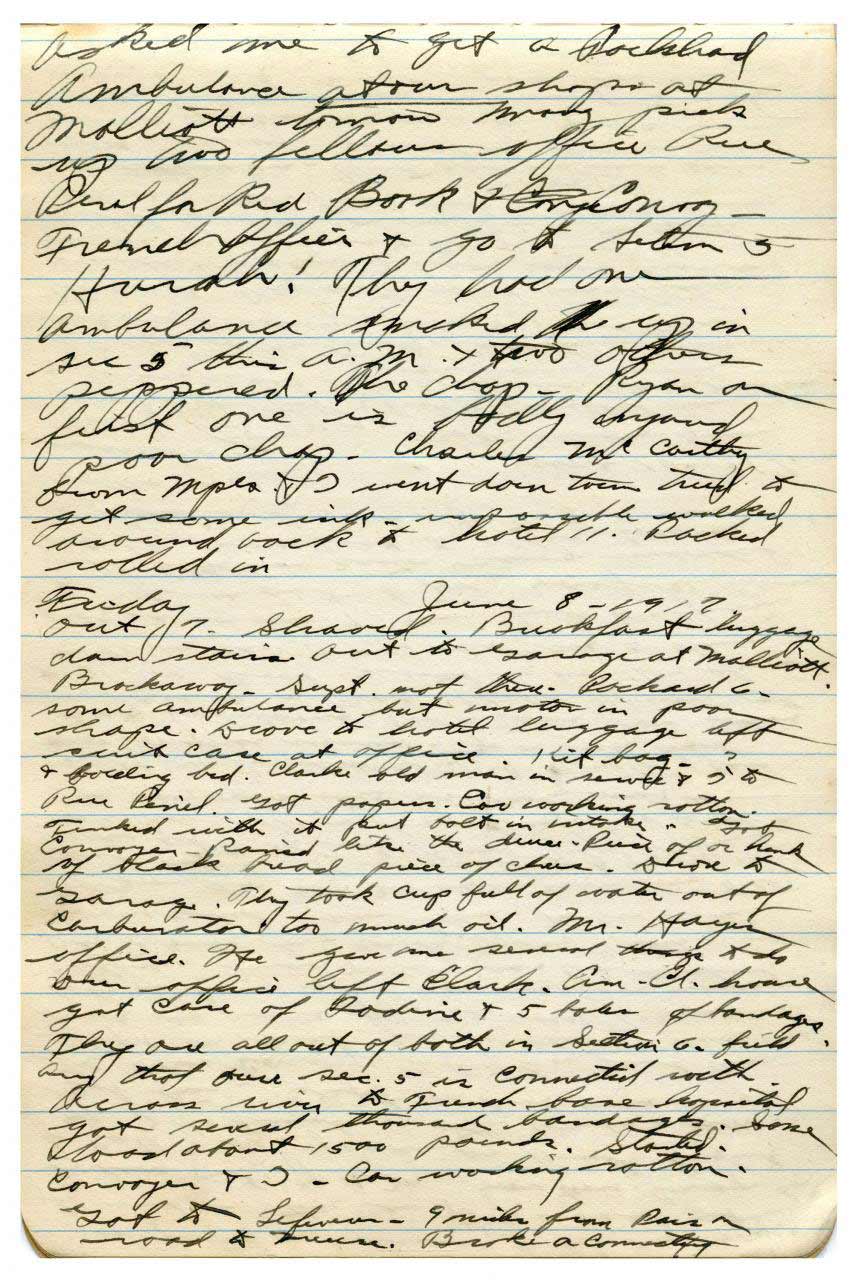 asked me to get a Packhard
Ambulance at our shops at
Malliott tomorow morng pick
up two fellows office Rue
for Red Book & Convoy -
French Officer & go to Section 5
Hurrah! They had one
ambulance smoked up in
sec 5 this A.M. & two others
peppered. The chap - Ryan on
first one is injured
poor chap - Charles McCarthy
from Mpls & I went down town tried to
get some ink - impossible walked
around back to hotel 11. Packed
rolled in
Friday June 8 - 1917
out 7. Shaved. Breakfast luggage
down stairs. Out to garage at Malliott.
Brockaway - Supt. not there. Packard 6 -
some ambulance but motor in poor
shape. Drove to hotel luggage left
suit case at office. Kit bag -
& folding bed. Clarke old man in service & I to
Rue Got papers. Car working rotten.
Tinked with it put bolt in intake. Got
Convoyer - Raised the diner - Piece of or hunk
of black bread piece of chees. Drove to
garage. They took cup full of water out of
Carburator too much oil. Mr. Hayes
office. He gave me several things to do
our office left Clark. Am - Cl. house
got case of Iodine & 5 bales of bandages.
They are all out of both in Section 6 - field
Amb that our sec. 5 is connected with.
Across river to French base hospital
got several thousand bandages. Some
load about 1500 pounds. Started.
Convoyer & I - Car working rotten.
Got to - 9 miles from Paris on
road to Broke a connecting